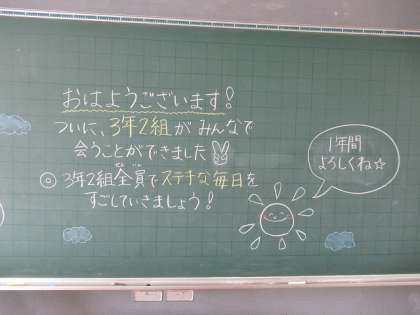 おはようございます!
ついに、3年2組がみんなで
会うことができました
◎3年2組全員でステキな毎日を
すごしていきましょう!
1年間
よろしくね☆